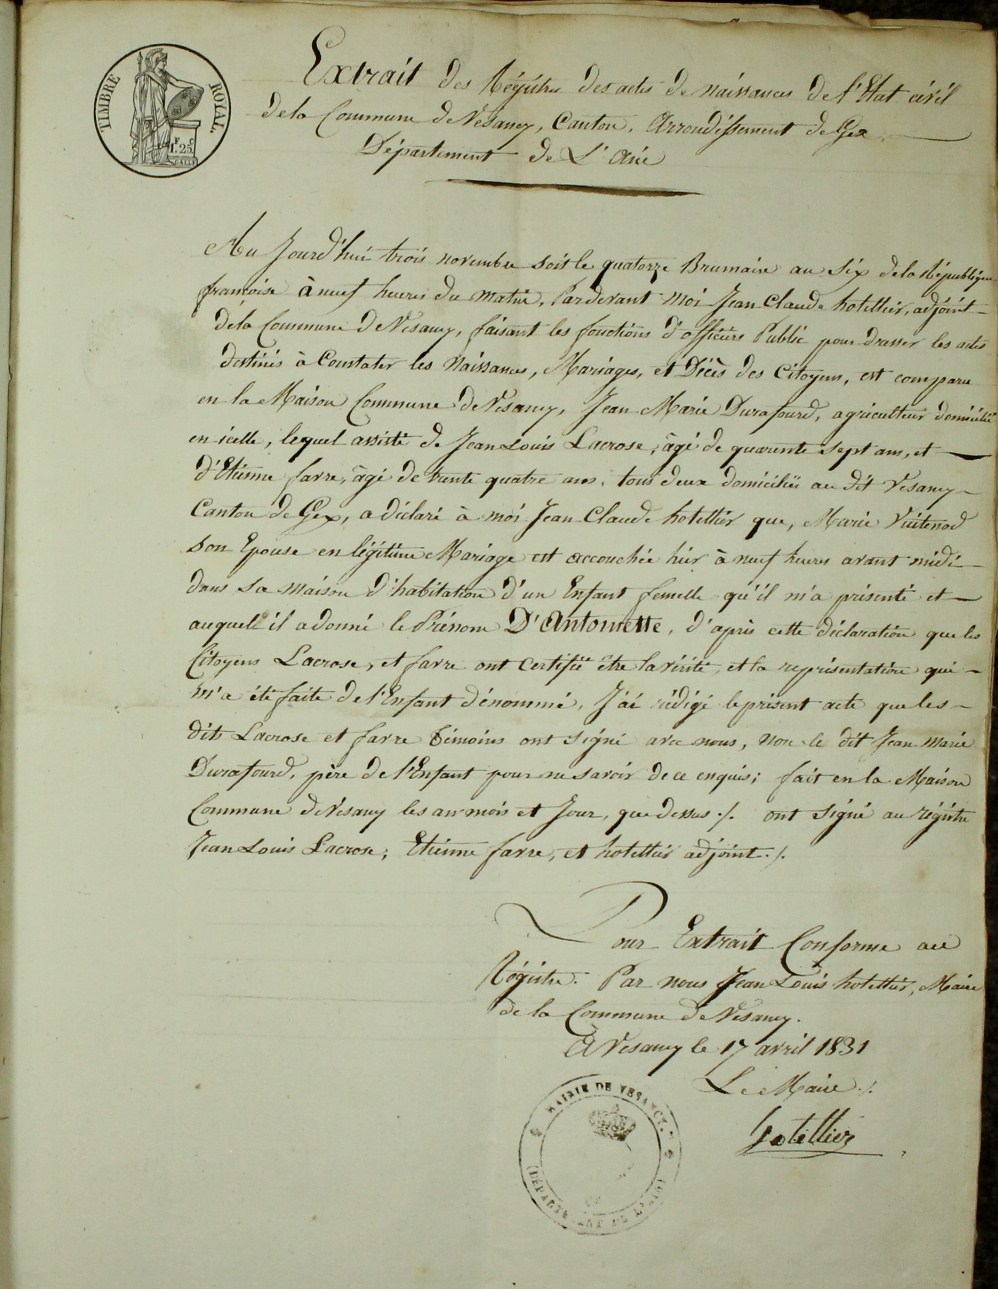 TIMBRE ROYAL.
1.25
Extrait des Régistres des actes de naissances de l'Etat civil
de la Commune de Vesancy, Canton, Arrondissement de Gex
Département de L'Ain
Au Jourd'hui trois novembre soit le quatorze Brumaire an six de la République
françoise à neuf heures du matin, Pardevant moi Jean Claude hotellier, adjoint
de la Commune de Vesancy, faisant les fonctions d'officiers Public pour dresser les actes
destinés à Constater les Naissances, Mariages, et Décès des Citoyens, est comparu
en la Maison Commune de Vesancy, Jean Marie Durafourd, agriculteur domicilié
en icelle, lequel assisté de Jean Louis Lacrose, âgé de quarante sept ans, et
d'Etienne farre, âgé de trente quatre ans, tous deux domiciliés au dit Vesancy
Canton de Gex, a déclaré à moi Jean Claude hotellier que, Marie Vuitenod
son Epouse en légitime Mariage est accouchée hier à neuf heures avant midi
dans sa maison d'habitation d'un Enfant femelle qu'il m'a présenté et
auquel il a donné le Prénom D'Antoinette, d'après cette déclaration que les
Citoyens Lacrose, et farre ont certifié être la vérité, et la représentation qui
m'a été faite de l'Enfant dénommé, J'ai rédigé le présent acte que les
dits Lacrose et farre témoins ont signé avec nous, non le dit Jean Marie
Durafourd, père de l'Enfant pour ne savoir de ce enquis; fait en la Maison
Commune de Vésancy les an mois et Jour, que dessus ./. ont signé au régistre
Jean Louis Lacrose; Etienne farre, et hotellier adjoint ./.
Pour Extrait Conforme au
Régistre. Par nous Jean Louis hotellier, Maire
de la Commune de Vesancy.
A Vesancy le 17 avril 1831
Le Maire ./.
hotellier
MAIRIE DE VESANCY.
(DÉPARTEMENT DE L'AIN)